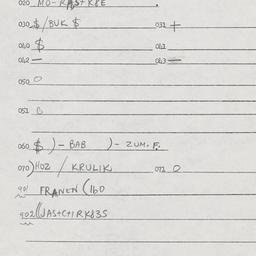 020 MO-RAST KRE .
030 $ /BUK $ 031 +
040 $ 041
042 — 043 —
050 O
051 C
060 $ )- BAB )- ZUM. F.
070 )HOZ / KRULIK 071 O
901 FRANEN (160
902 ((JAS+C+IRK83S